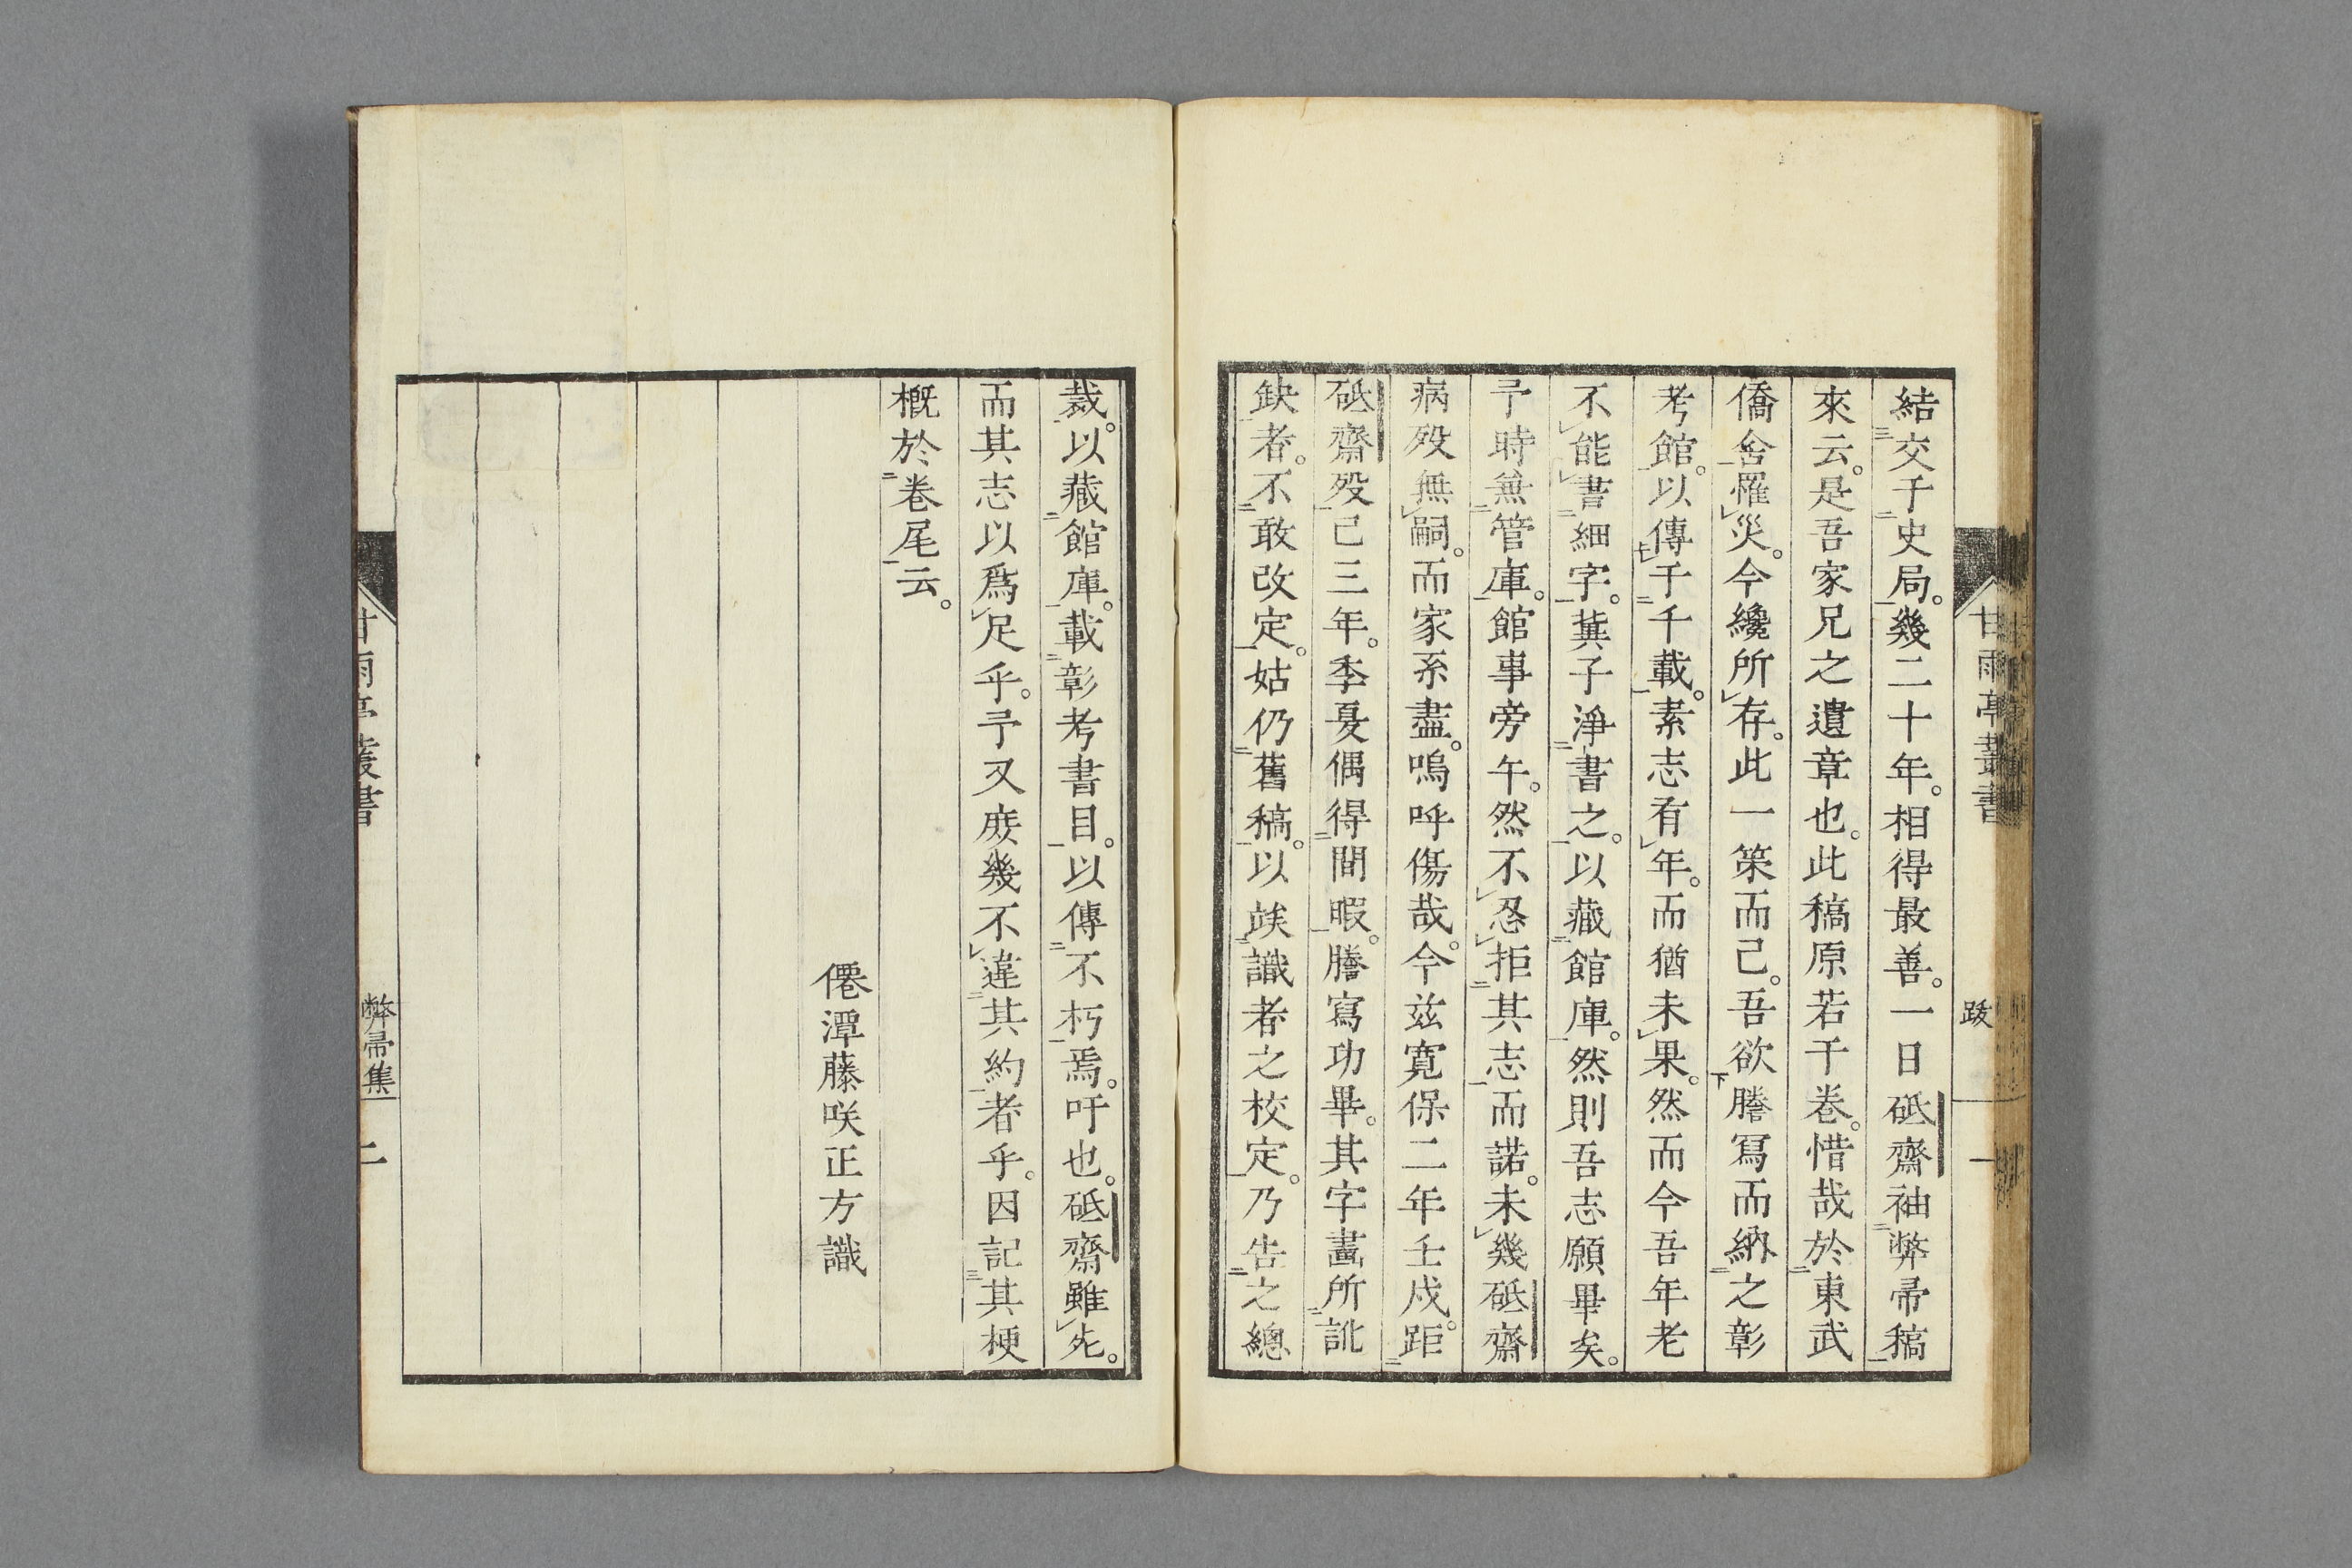 甘雨亭叢書 跋 一
結交于史局。幾二十年。相得最善。一日砥齋袖弊帚稿
來云。是吾家兄之遺章也。此稿原若干卷。惜哉於東武
僑舍罹災。今纔所存。此一策而已。吾欲謄冩而納之彰
考館。以傳于千載。素志有年。而猶未果。然而今吾年老
不能書細字。冀子淨書之。以藏館庫。然則吾志願畢矣。
予時兼管庫。館事旁午。然不忍拒其志而諾。未幾砥齋
病歿無嗣。而家系盡。嗚呼傷哉。今兹寛保二年壬戌。距
砥齋歿已三年。季夏偶得間暇。謄寫功畢。其字畫所訛
缺者。不敢改定。姑仍舊稿。以竢識者之校定。乃告之總
裁。以藏館庫。載彰考書目。以傳不朽焉。吁也。砥齋雖死。
而其志以爲足乎。予又庶幾不違其約者乎。因記其梗
概於卷尾云。
僊潭藤咲正方識
甘雨亭叢書 弊帚集 二